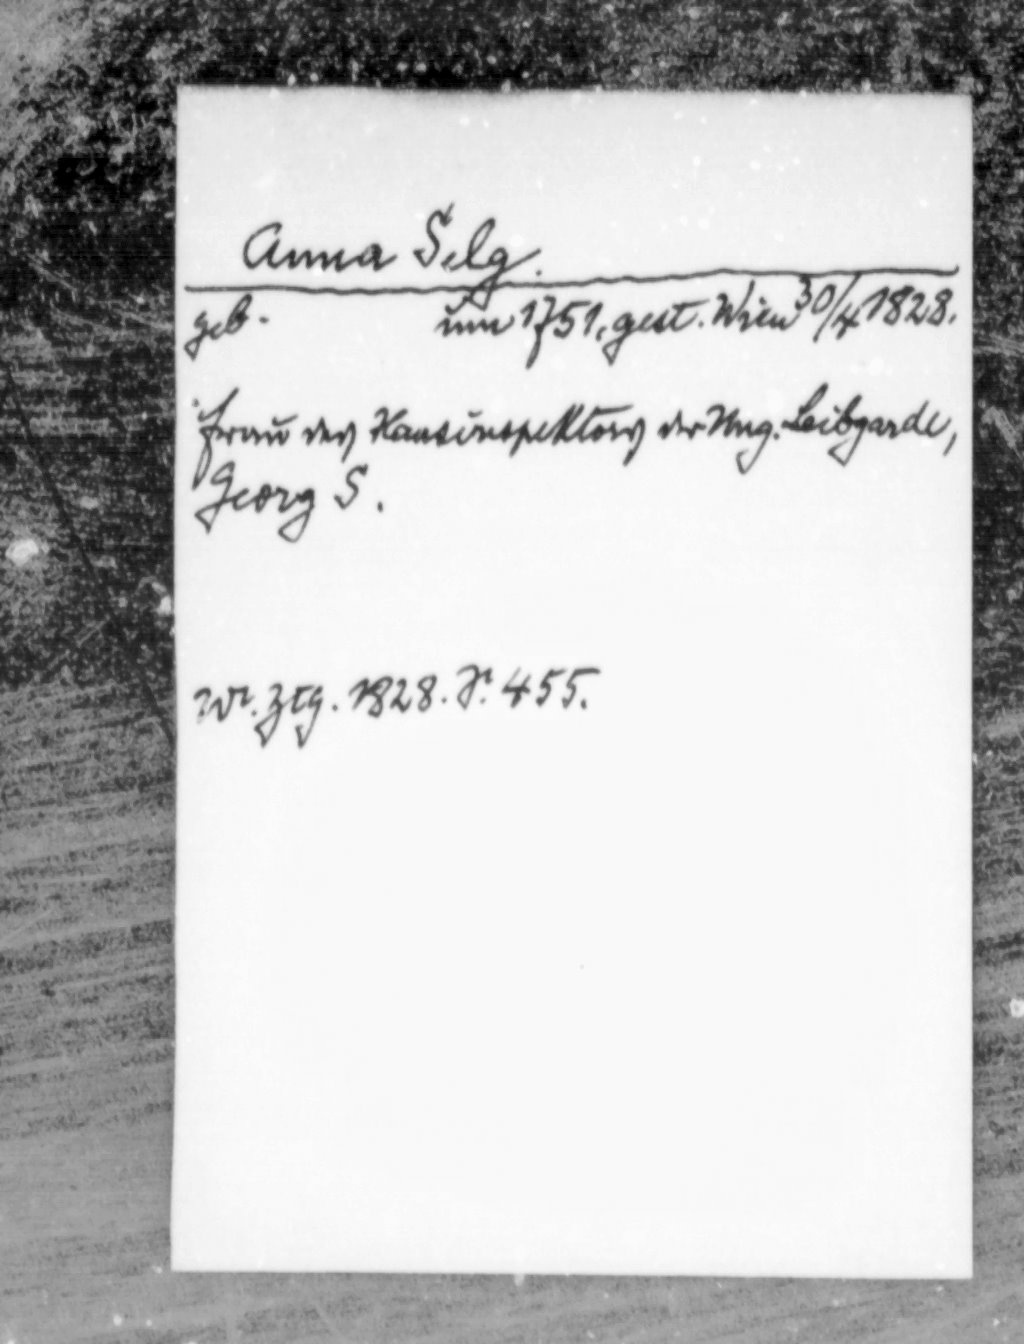 Anna Selg.
geb. um 1751, gest. Wien 30/4 1828.
Frau des Hausinspektors der Ung. Leibgarde,
Georg S.
Wr. Ztg. 1828. S. 455.